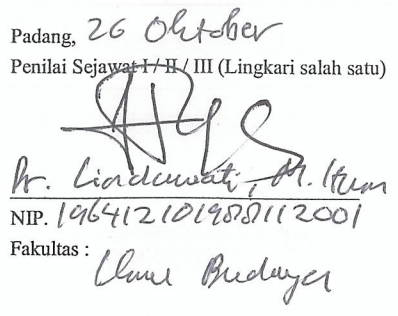 Padang, 26 Oktober
Penilai Sejawat I / II / III (Lingkari salah satu)
Dr. Lindawati, M. Hum
NIP. 196412101988112001
Fakultas :
Ilmu Budaya